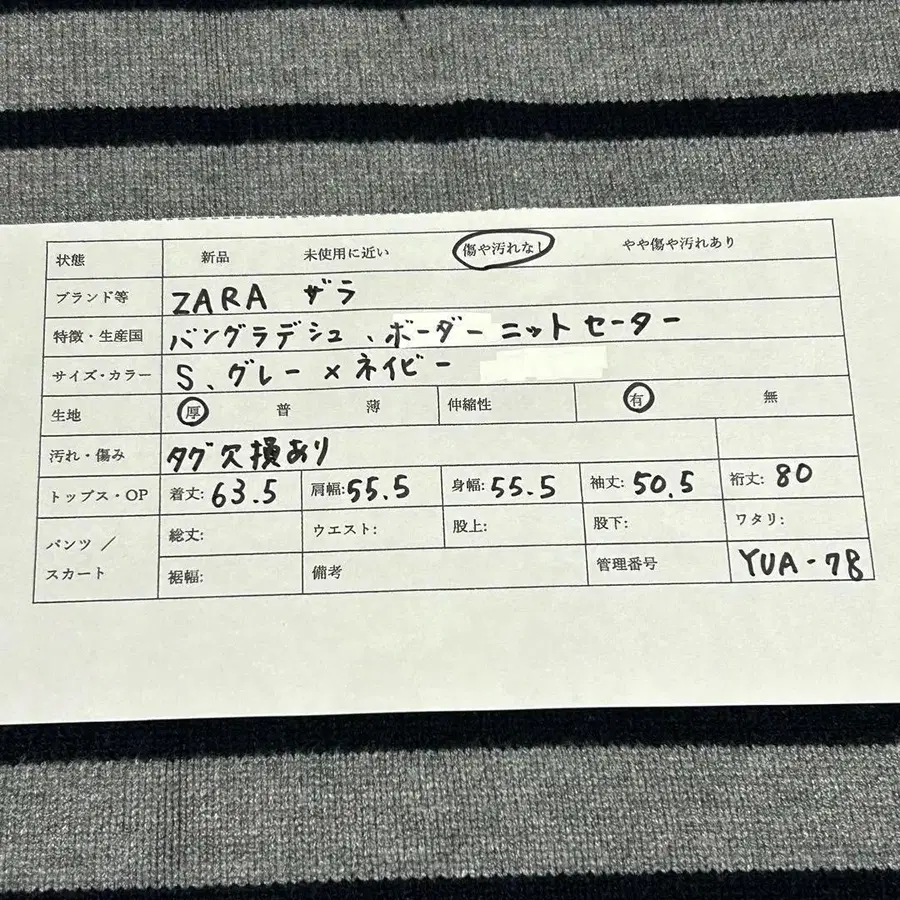 状態 新品 未使用に近い 傷や汚れなし やや傷や汚れあり
ブランド等 ZARA ザラ
特徴・生産国 バングラデシュ、ボーダーニットセーター
サイズ・カラー S、グレー×ネイビー
生地 厚 普 薄 伸縮性 有 無
汚れ・傷み タグ欠損あり
トップス・OP 着丈:63.5 肩幅:55.5 身幅:55.5 袖丈:50.5 裄丈:80
パンツ／スカート 総丈: ウエスト: 股上: 股下: ワタリ:
裾幅: 備考 管理番号 YUA-78